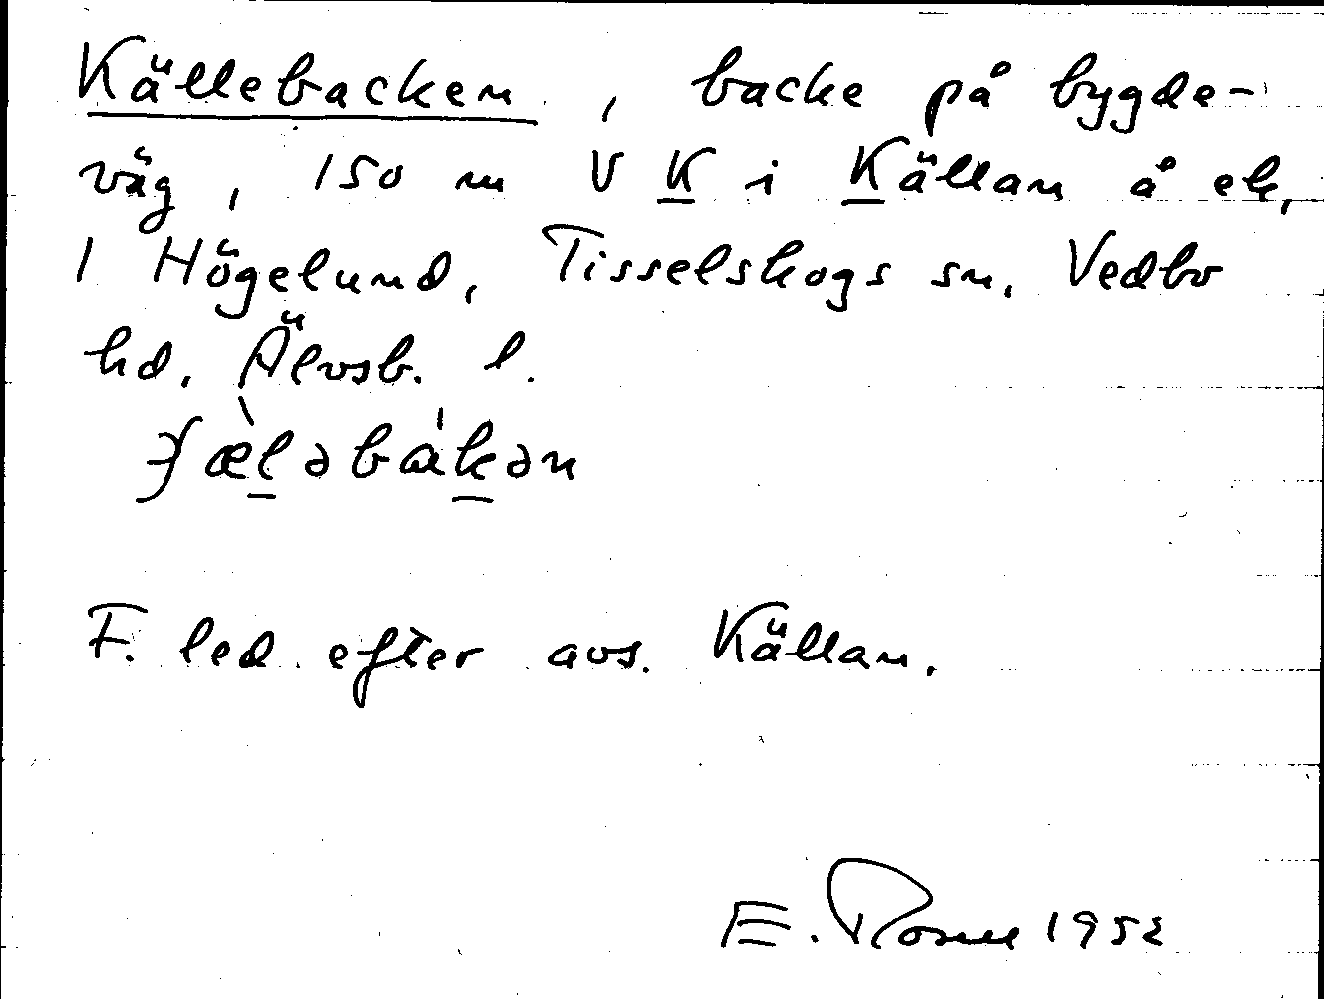 Källebacken, backe på bygde-
väg, 150 m V K i Källan å ek.
1 Högelund, Tisselskogs sn, Vedbo
hd. Älvsb. l.
ꞔæ̀ləbákən
F. led efter avs. Källan.
E. Rosell 1952